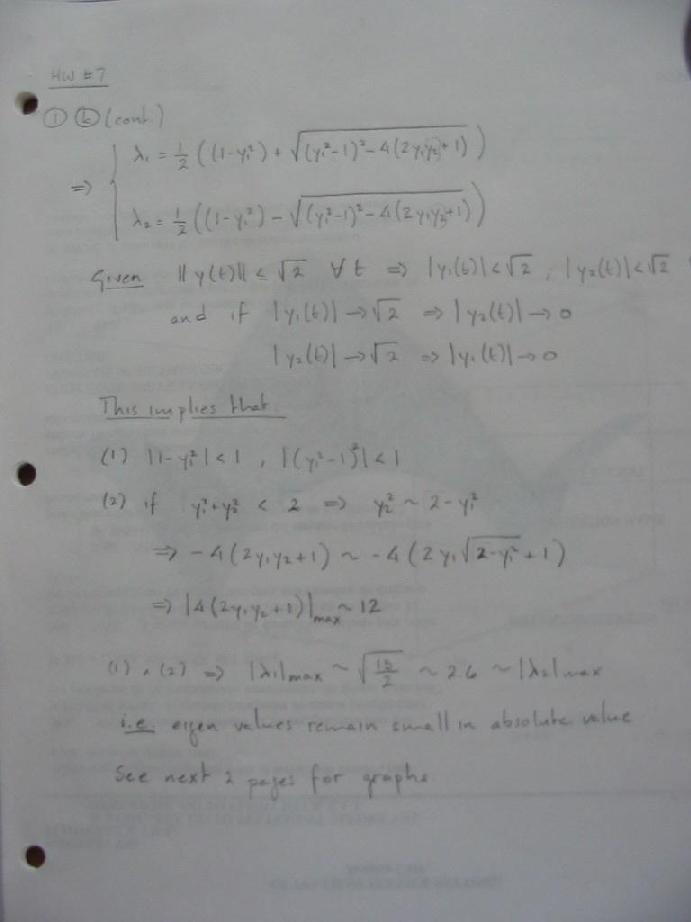 HW #7
① ⓑ (cont.)
⇒ { λ₁ = 1/2 ((1-y₁²) + √((y₁²-1)² - 4(2y₁y₂+1)))
λ₂ = 1/2 ((1-y₁²) - √((y₁²-1)² - 4(2y₁y₂+1)))
Given ||y(t)|| < √2 ∀ t ⇒ |y₁(t)| < √2, |y₂(t)| < √2
and if |y₁(t)| → √2 ⇒ |y₂(t)| → 0
|y₂(t)| → √2 ⇒ |y₁(t)| → 0
This implies that
(1) |1-y₁²| < 1, |(y₁²-1)²| < 1
(2) if y₁²+y₂² < 2 ⇒ y₂² ~ 2-y₁²
⇒ -4(2y₁y₂+1) ~ -4(2y₁√(2-y₁²)+1)
⇒ |4(2y₁y₂+1)|max ~ 12
(1) ∧ (2) ⇒ |λ₁|max ~ ~ 2.6 ~ |λ₂|max
i.e. eigen values remain small in absolute value
See next 2 pages for graphs